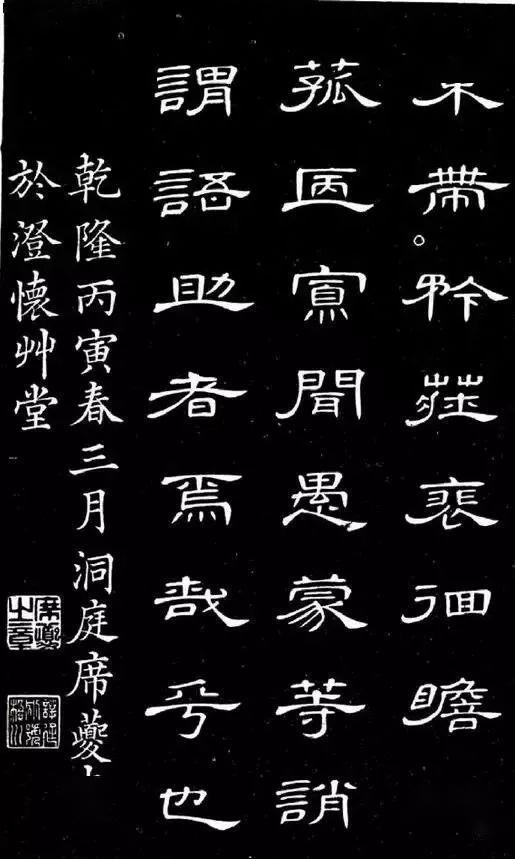 不帶矜莊裵徊瞻
菰㔷寡聞愚蒙等誚
謂語助者焉哉乎也
乾隆丙寅春三月洞庭席夔
於澄懷艸堂
席夔之章